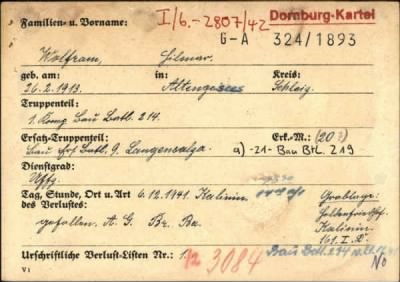 Familien- u. Vorname: I/6.-2807/42 Dornburg-Kartei
G-A 324/1893
Wolfram, Hilmar.
geb. am: in: Kreis:
26.2.1913. Altengesees Schleiz.
Truppenteil:
1. Komp Bau Batl. 214.
Ersatz-Truppenteil: Erk.-M.: (20?)
Bau Ers Batl. 9. Langensalza. a) -21- Bau Btl. 219
Dienstgrad:
Uffz.
Tag, Stunde, Ort u. Art 6.12.1941. Kalinin. Grablage:
des Verlustes:
gefallen. A. G. Br. Ba. Kalinin
161. I. D.
Urschriftliche Verlust-Listen Nr.: 1. 12 3084 Bau Batl. 214
No
V 1